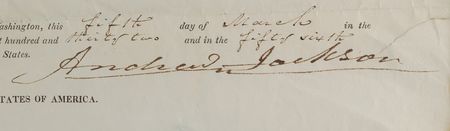 ashington, this fifth day of March in the
t hundred and thirty two and in the fifty sixth
States.
Andrew Jackson
TATES OF AMERICA.